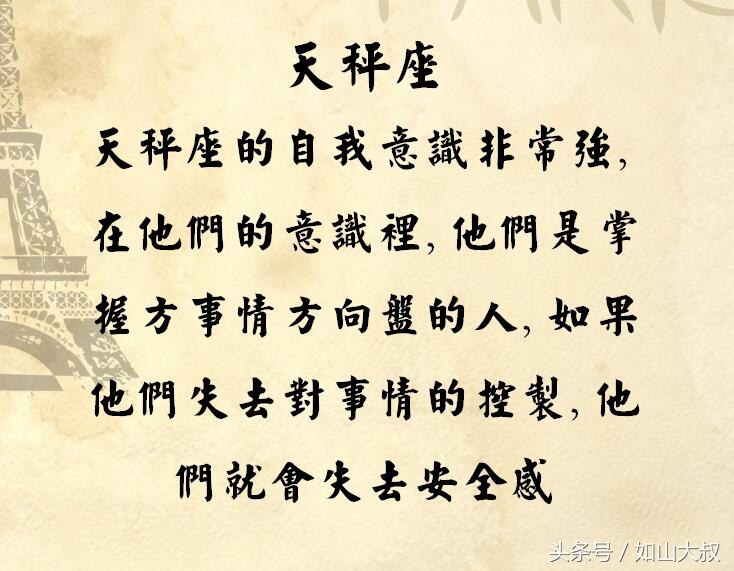 天秤座
天秤座的自我意識非常強,
在他們的意識裡,他們是掌
握方事情方向盤的人,如果
他們失去對事情的控製,他
們就會失去安全感
头条号/如山大叔